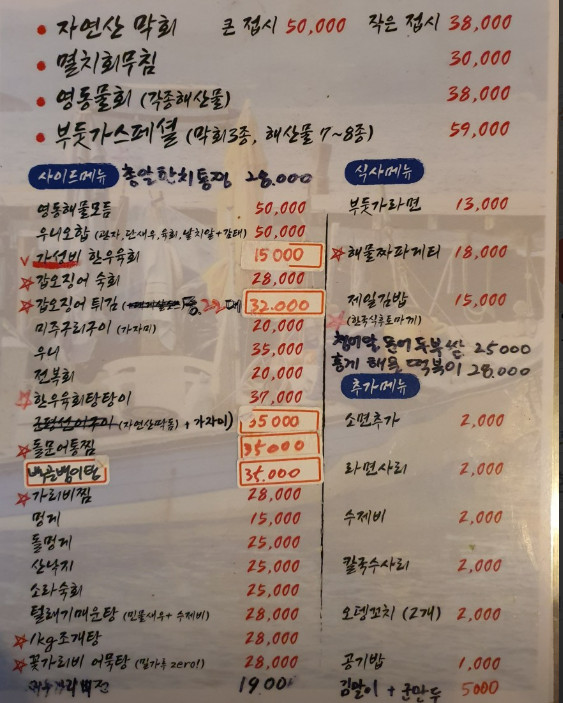 • 자연산 막회 큰 접시 50,000 작은 접시 38,000
• 멸치회무침 30,000
• 영동물회 (각종해산물) 38,000
• 부둣가스페셜 (막회3종, 해산물 7~8종) 59,000
사이드메뉴 총알한치통찜 28.000
영동해물모듬 50,000
우니오합 (관자,단새우,육회,날치알+감태) 50,000
가성비 한우육회 15000
☆갑오징어 숙회 28,000
☆갑오징어 튀김 32.000
미주구리구이 (가자미) 20,000
우니 35,000
전복회 20,000
☆한우육회탕탕이 37,000
(자연산딱돔) + 가자미) 35000
☆돌문어통찜 35000
35.000
☆가리비찜 28,000
멍게 15,000
돌멍게 25,000
산낙지 25,000
소라숙회 25,000
털래기매운탕 (민물새우+ 수제비) 28,000
☆1kg조개탕 28,000
☆꽃가리비 어묵탕 (밀가루 zero!) 28,000
1900
식사메뉴
부둣가라면 13,000
☆해물짜파게티 18,000
제일김밥 15,000
☆(한국식후토마끼)
두부쌈 25000
홍게 해물 떡볶이 28.000
추가메뉴
소면추가 2,000
라면사리 2,000
수제비 2,000
칼국수사리 2,000
오뎅꼬치 (2개) 2,000
공기밥 1,000
김말이 + 군만두 5000